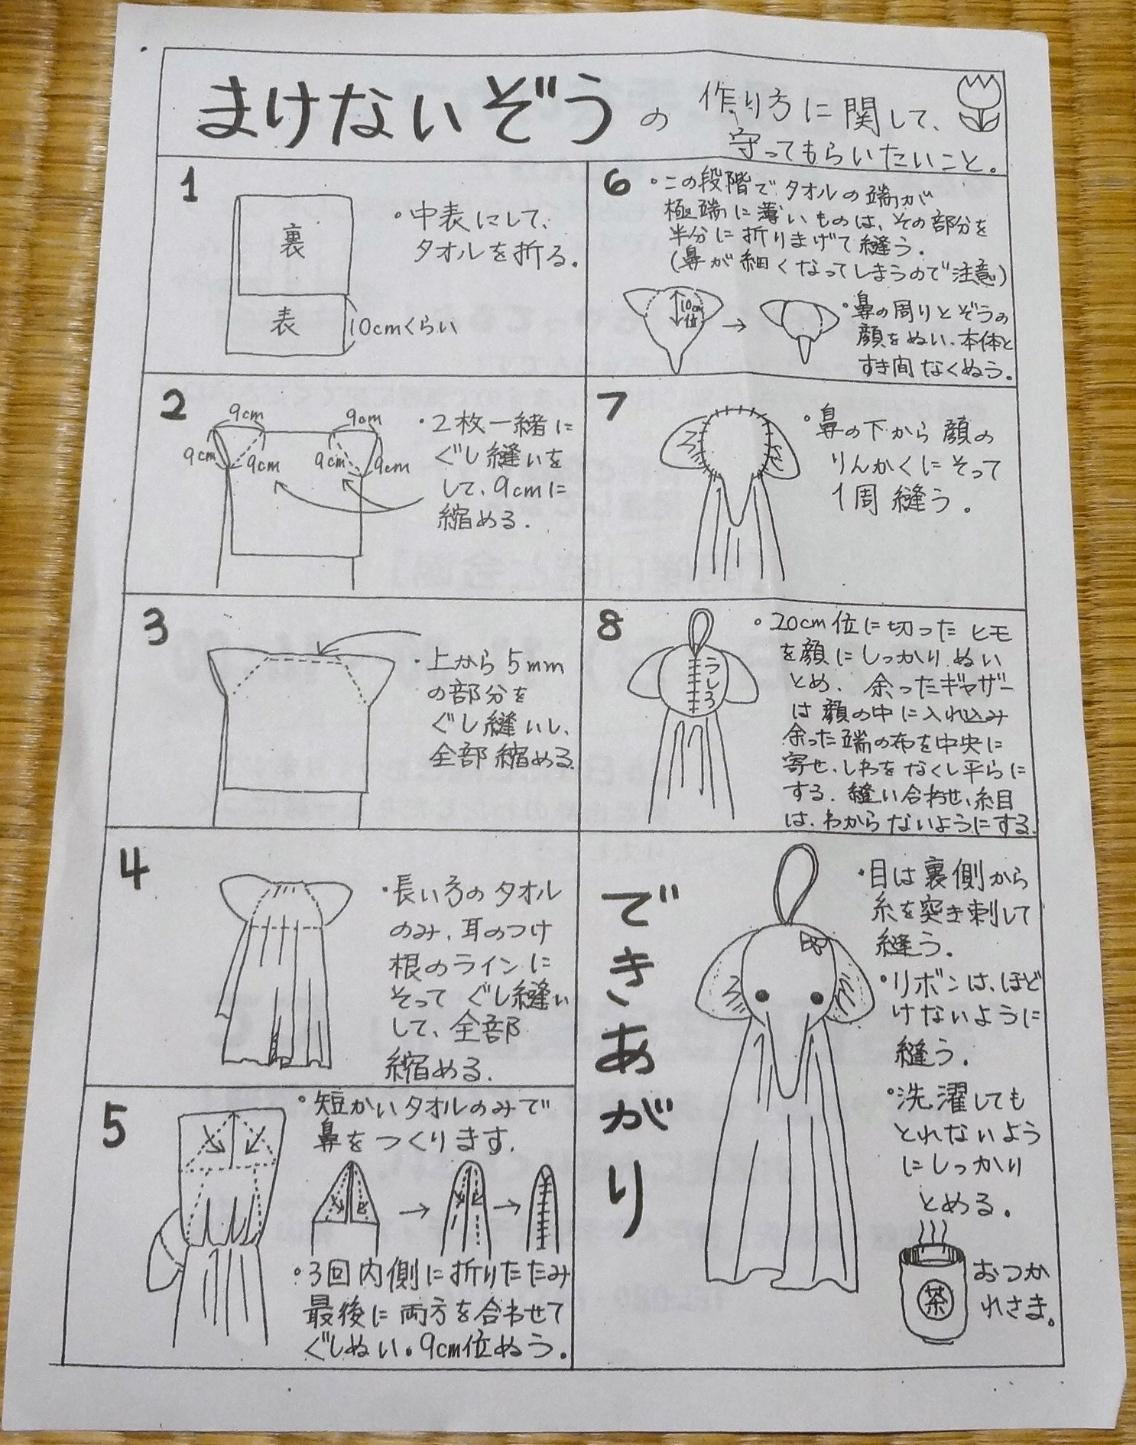 まけないぞうの 作り方に関して、
守ってもらいたいこと。
1
裏
表
10cmくらい
・中表にして、
タオルを折る。
2
9cm
9cm
9cm
9cm
9cm
9cm
・2枚一緒に
ぐし縫いを
して、9cmに
縮める.
3
・上から5mm
の部分を
ぐし縫いし、
全部縮める.
4
・長い方のタオル
のみ、耳のつけ
根のラインに
そって ぐし縫い
して、全部
縮める.
5
・短かいタオルのみで
鼻をつくります.
・3回内側に折りたたみ
最後に両方を合わせて
ぐしぬい。9cm位ぬう。
6
・この段階でタオルの端が
極端に薄いものは、その部分を
半分に折りまげて縫う.
(鼻が細くなってしまうので注意)
10cm
位
・鼻の周りとぞうの
顔をぬい、本体と
すき間なくぬう。
7
・鼻の下から顔の
りんかくにそって
1周縫う。
8
うしろ
・20cm位に切ったヒモ
を顔にしっかりぬい
とめ、余ったギャザー
は顔の中に入れ込み
余った端の布を中央に
寄せ、しわをなくし平らに
する. 縫い合わせ、糸目
は、わからないようにする.
できあがり
・目は裏側から
糸を突き刺して
縫う.
・リボンは、ほど
けないように
縫う.
・洗濯しても
とれないよう
にしっかり
とめる.
茶
おつか
れさま。